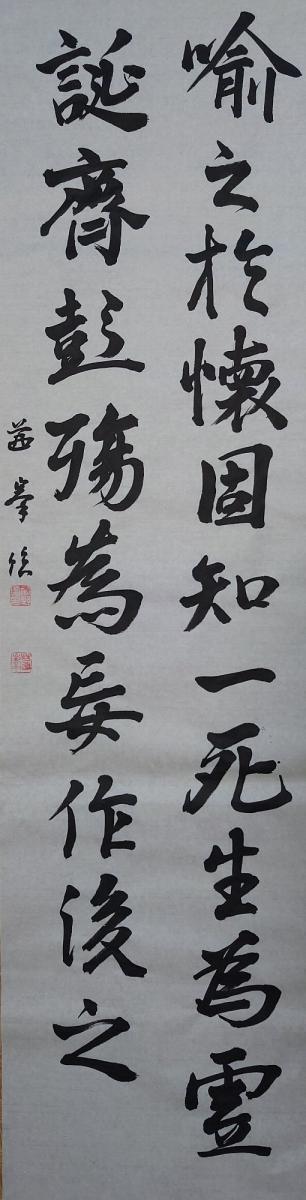 喻之於懷固知一死生為虛
誕齊彭殤為妄作後之
峯臨